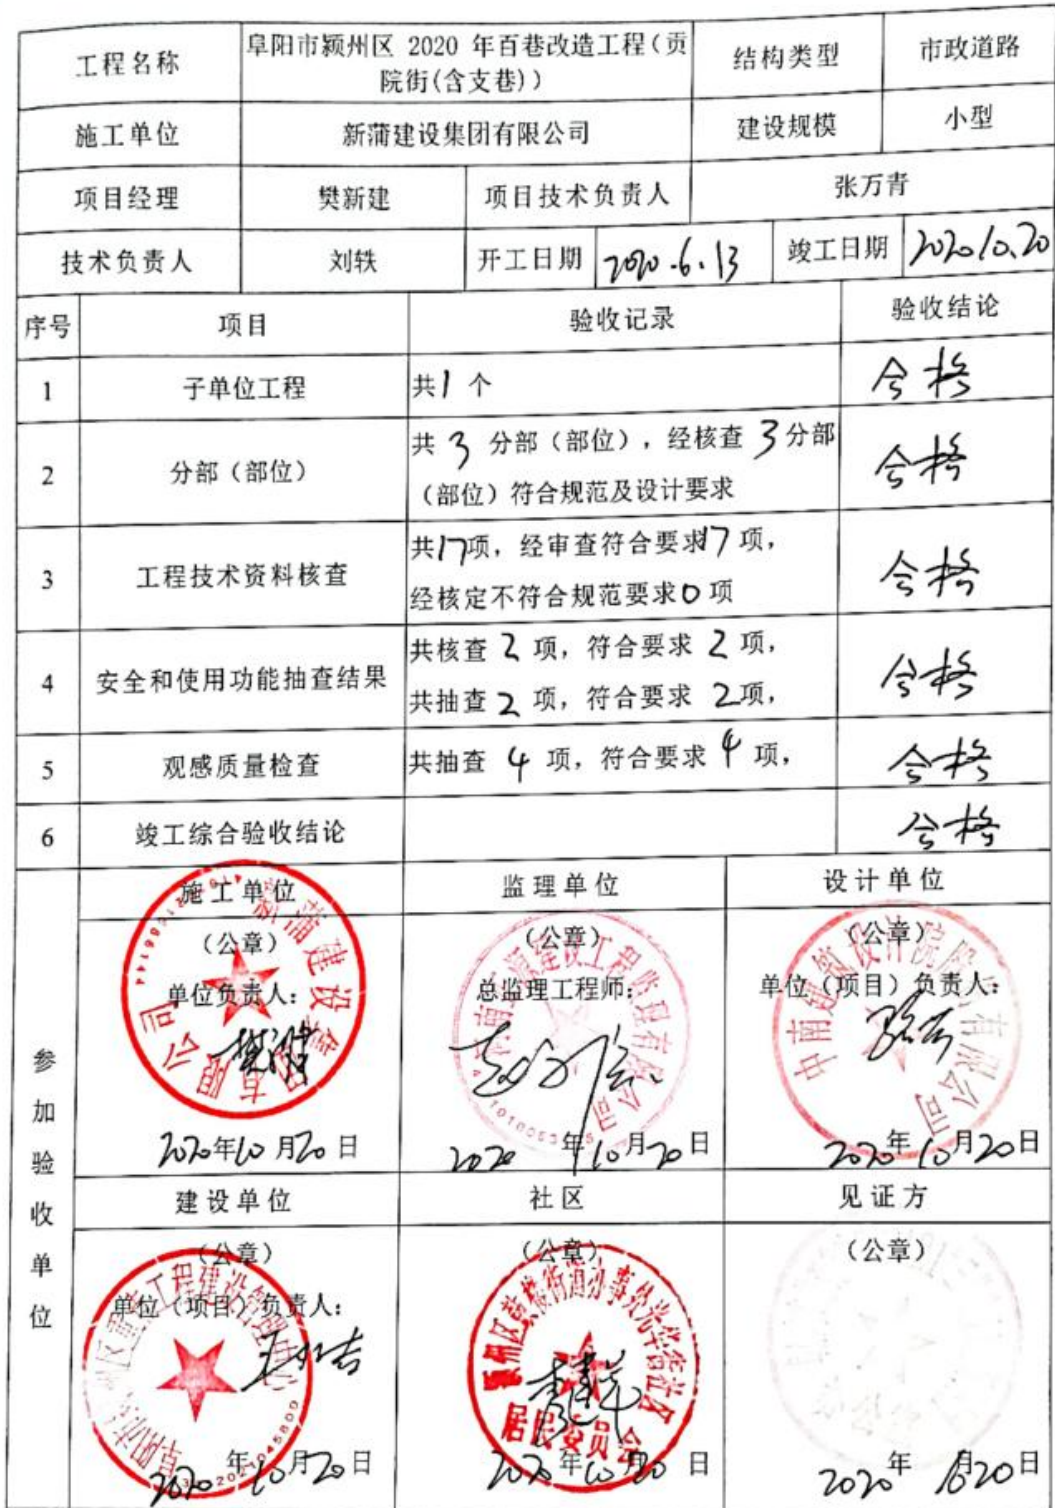 工程名称
阜阳市颍州区 2020 年百巷改造工程（贡
院街(含支巷)）
结构类型
市政道路
施工单位
新蒲建设集团有限公司
建设规模
小型
项目经理
樊新建
项目技术负责人
张万青
技术负责人
刘轶
开工日期
2020.6.13
竣工日期
2020.10.20
序号
项目
验收记录
验收结论
1
子单位工程
共1 个
合格
2
分部（部位）
共 3 分部（部位），经核查 3分部
（部位）符合规范及设计要求
合格
3
工程技术资料核查
共17项，经审查符合要求17项，
经核定不符合规范要求0项
合格
4
安全和使用功能抽查结果
共核查 2 项，符合要求 2 项，
共抽查 2 项，符合要求 2项，
合格
5
观感质量检查
共抽查 4 项，符合要求 4 项，
合格
6
竣工综合验收结论
合格
参加验收单位
施工单位
（公章）
单位负责人：
新蒲建设集团有限公司
2020年10月20日
监理单位
（公章）
总监理工程师：
2020年10月20日
设计单位
（公章）
单位（项目）负责人：
2020年10月20日
建设单位
（公章）
单位（项目）负责人：
2020年10月20日
社区
（公章）
居民委员会
2020年10月20日
见证方
（公章）
2020年 10 20日